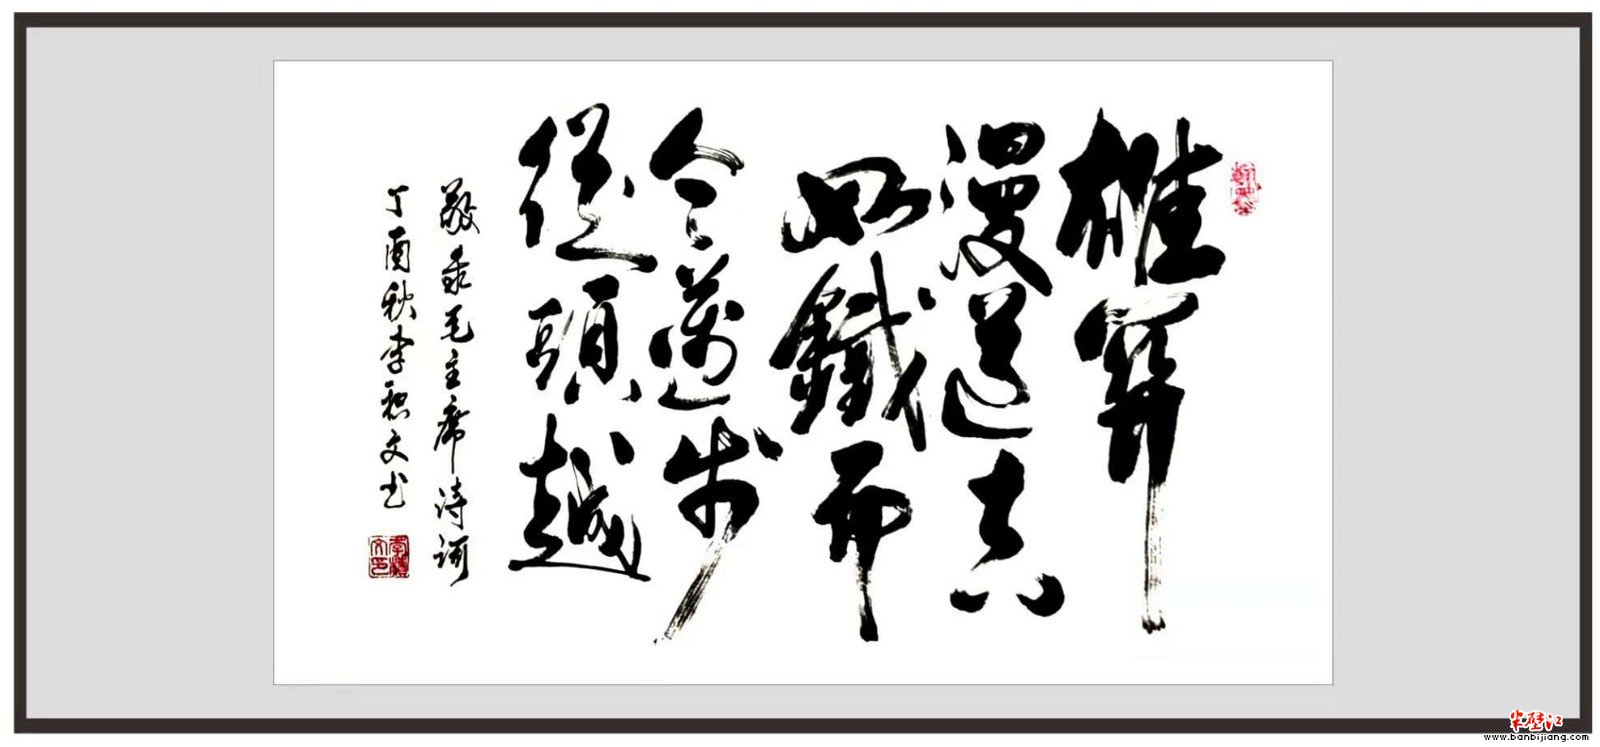 雄關
漫道真
如鐵而
今邁步
從頭越
敬录毛主席诗词
丁酉秋李文书
半壁江
www.banbijiang.com